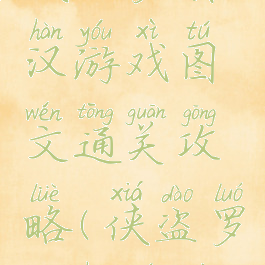 hàn yóu xì tú
汉游戏图
wén tōng guān gōng
文通关攻
lüè xiá dào luó
略(侠盗罗